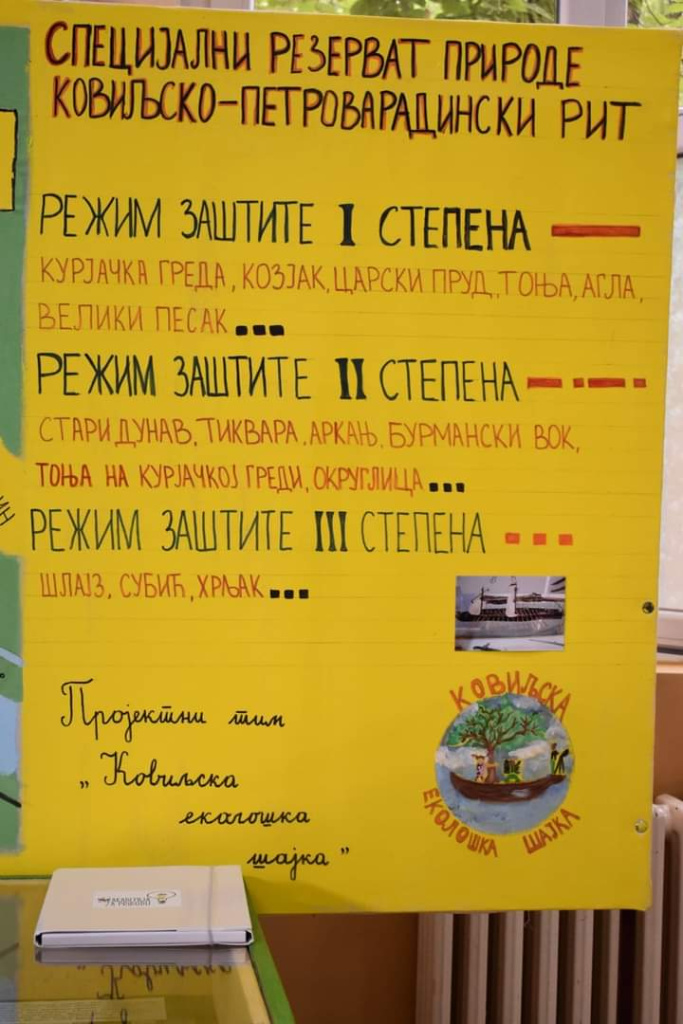 СПЕЦИЈАЛНИ РЕЗЕРВАТ ПРИРОДЕ
КОВИЉСКО-ПЕТРОВАРАДИНСКИ РИТ
РЕЖИМ ЗАШТИТЕ I СТЕПЕНА
КУРЈАЧКА ГРЕДА, КОЗЈАК, ЦАРСКИ ПРУД, ТОЊА, АГЛА,
ВЕЛИКИ ПЕСАК...
РЕЖИМ ЗАШТИТЕ II СТЕПЕНА
СТАРИ ДУНАВ, ТИКВАРА, АРКАЊ, БУРМАНСКИ ВОК,
ТОЊА НА КУРЈАЧКОЈ ГРЕДИ, ОКРУГЛИЦА...
РЕЖИМ ЗАШТИТЕ III СТЕПЕНА
ШЛАЈЗ, СУБИЋ, ХРЉАК...
Пројектни тим
„Ковиљска
еколошка
шајка”
КОВИЉСКА
ЕКОЛОШКА ШАЈКА